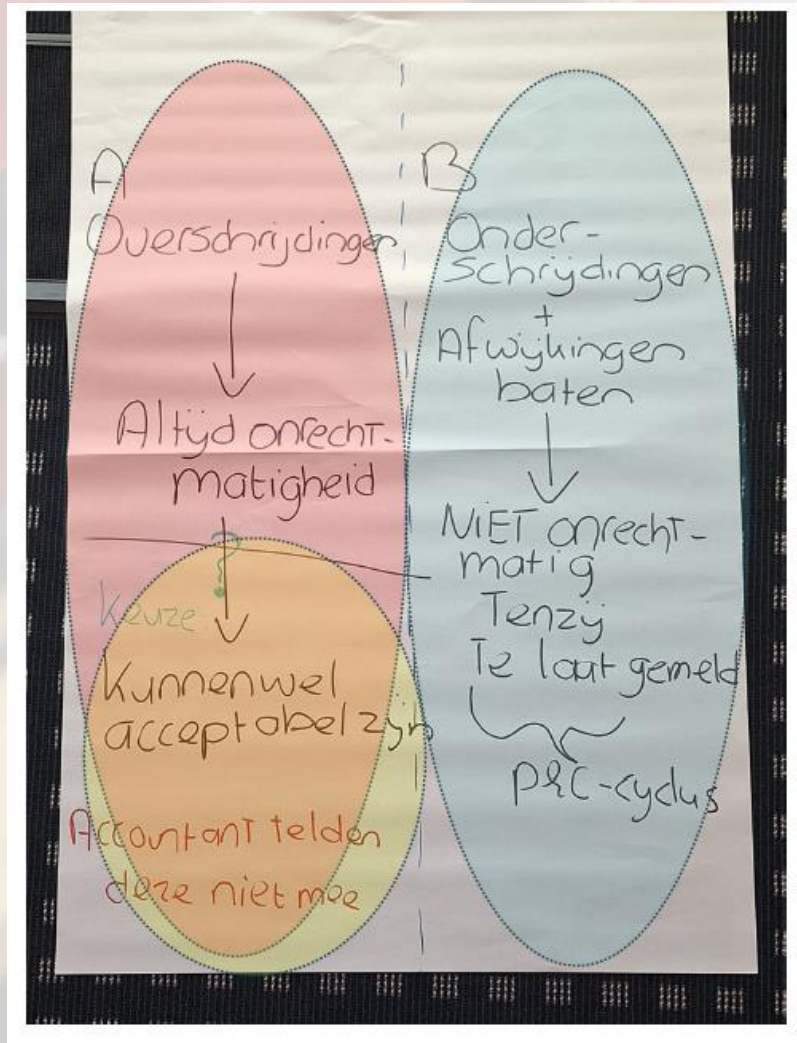 A
Overschrijdingen
Altijd onrecht-
matigheid
?
Keuze
Kunnen wel
acceptabel zijn
Accountant telden
deze niet mee
B
Onder-
schrijdingen
+
Afwijkingen
baten
NIET onrecht-
matig
Tenzij
Te laat gemeld
P&C-cyclus